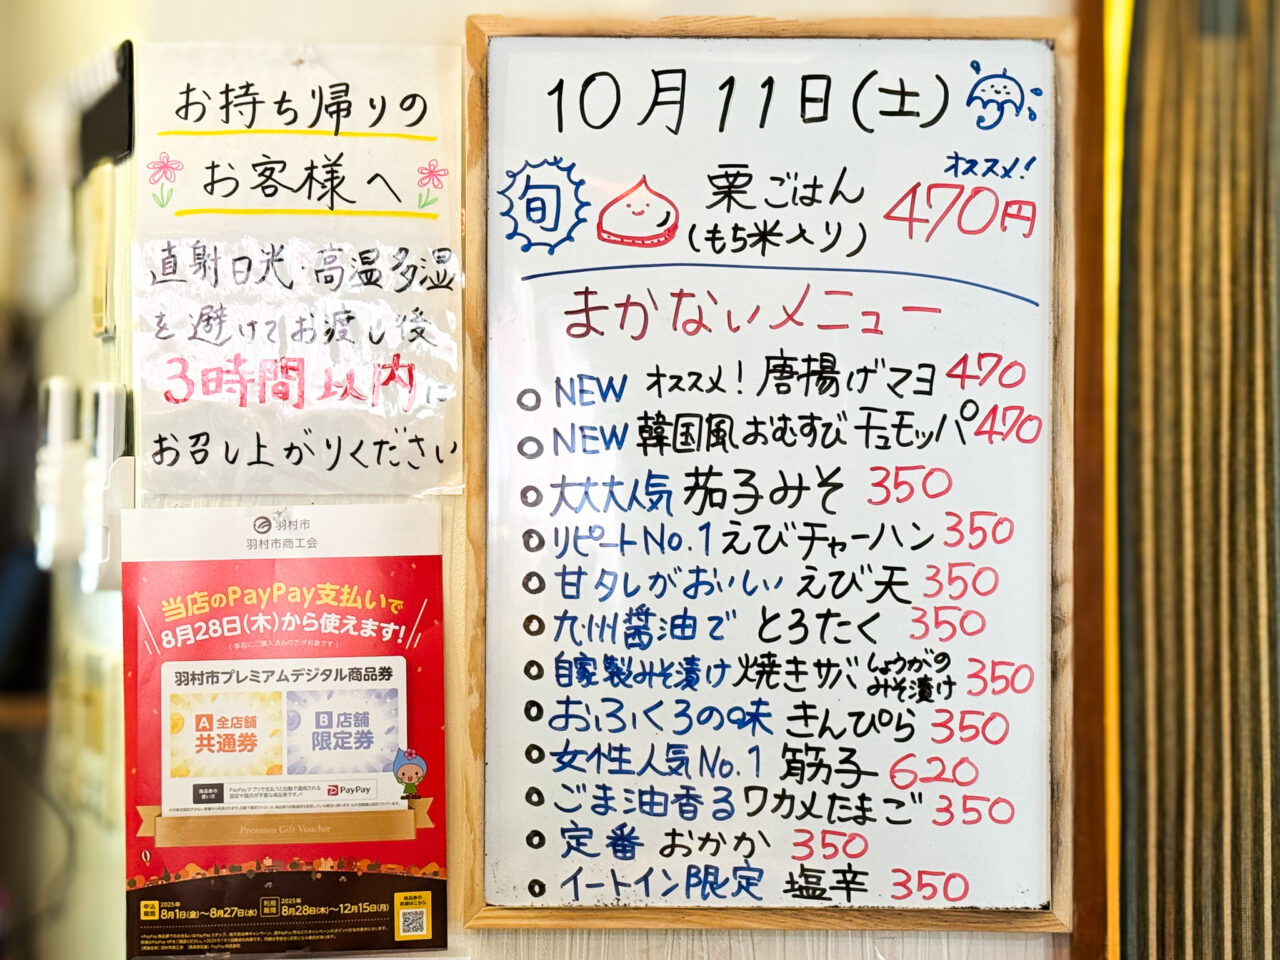 お持ち帰りの
お客様へ
直射日光・高温多湿
を避けてお渡し後
3時間以内に
お召し上がりください
羽村市
羽村市商工会
当店のPayPay支払いで
8月28日(木)から使えます!
(事前にご購入済みの方が対象です)
羽村市プレミアムデジタル商品券
A 全店舗 共通券
B 店舗 限定券
商品券の使い方
PayPay
Premium Gift Voucher
申込期間 2025年 8月1日(金)～8月27日(水)
利用期間 2025年 8月28日(木)～12月15日(月)
商品券の詳細はこちら
10月11日(土)
オススメ!
旬 栗ごはん 470円
(もち米入り)
まかないメニュー
NEW オススメ! 唐揚げマヨ 470
NEW 韓国風おむすび チュモッパ 470
大大大人気 茄子みそ 350
リピートNo.1 えびチャーハン 350
甘タレがおいしい えび天 350
九州醤油で とろたく 350
自家製みそ漬け 焼きサバ しょうがのみそ漬け 350
おふくろの味 きんぴら 350
女性人気No.1 筋子 620
ごま油香る ワカメたまご 350
定番 おかか 350
イートイン限定 塩辛 350